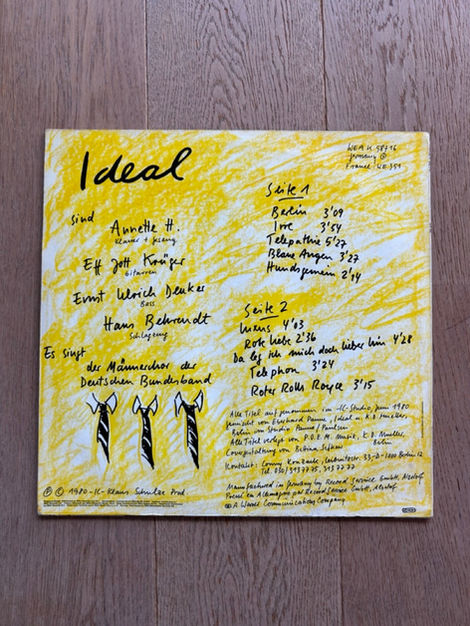 Ideal
sind
Annette H.
Klavier + Gesang
Eff Jott Krüger
Gitarren
Ernst Ulrich Deuker
Bass
Hans Behrendt
Schlagzeug
Es singt
der Männerchor der
Deutschen Bundesband
℗ © 1980 -IC- Klaus Schulze Prod
WEA K 58716
Germany
France: WE 351
Seite 1
Berlin 3'09
Irre 3'54
Telepathie 5'27
Blaue Augen 3'27
Hundsgemein 2'14
Seite 2
Luxus 4'03
Rote Liebe 2'36
Da leg ich mich doch lieber hin 4'28
Telephon 3'24
Roter Rolls Royce 3'15
Alle Titel aufgenommen im -IC- Studio, Juni 1980
gemischt von Eberhard Panne, Ideal u. K.D. Mueller
Berlin im Studio Panne/Paulsen
Alle Titel verlegt von P.O.E.M. Musik, K.D. Mueller,
Berlin
Covergestaltung von Bettina
Kontakt: Conny 33-D-1000 Berlin 12
Tel. 030/
Manufactured in Germany by Record Service GmbH, Alsdorf
Pressé en Allemagne par Record Service GmbH, Alsdorf
A Warner Communications Company